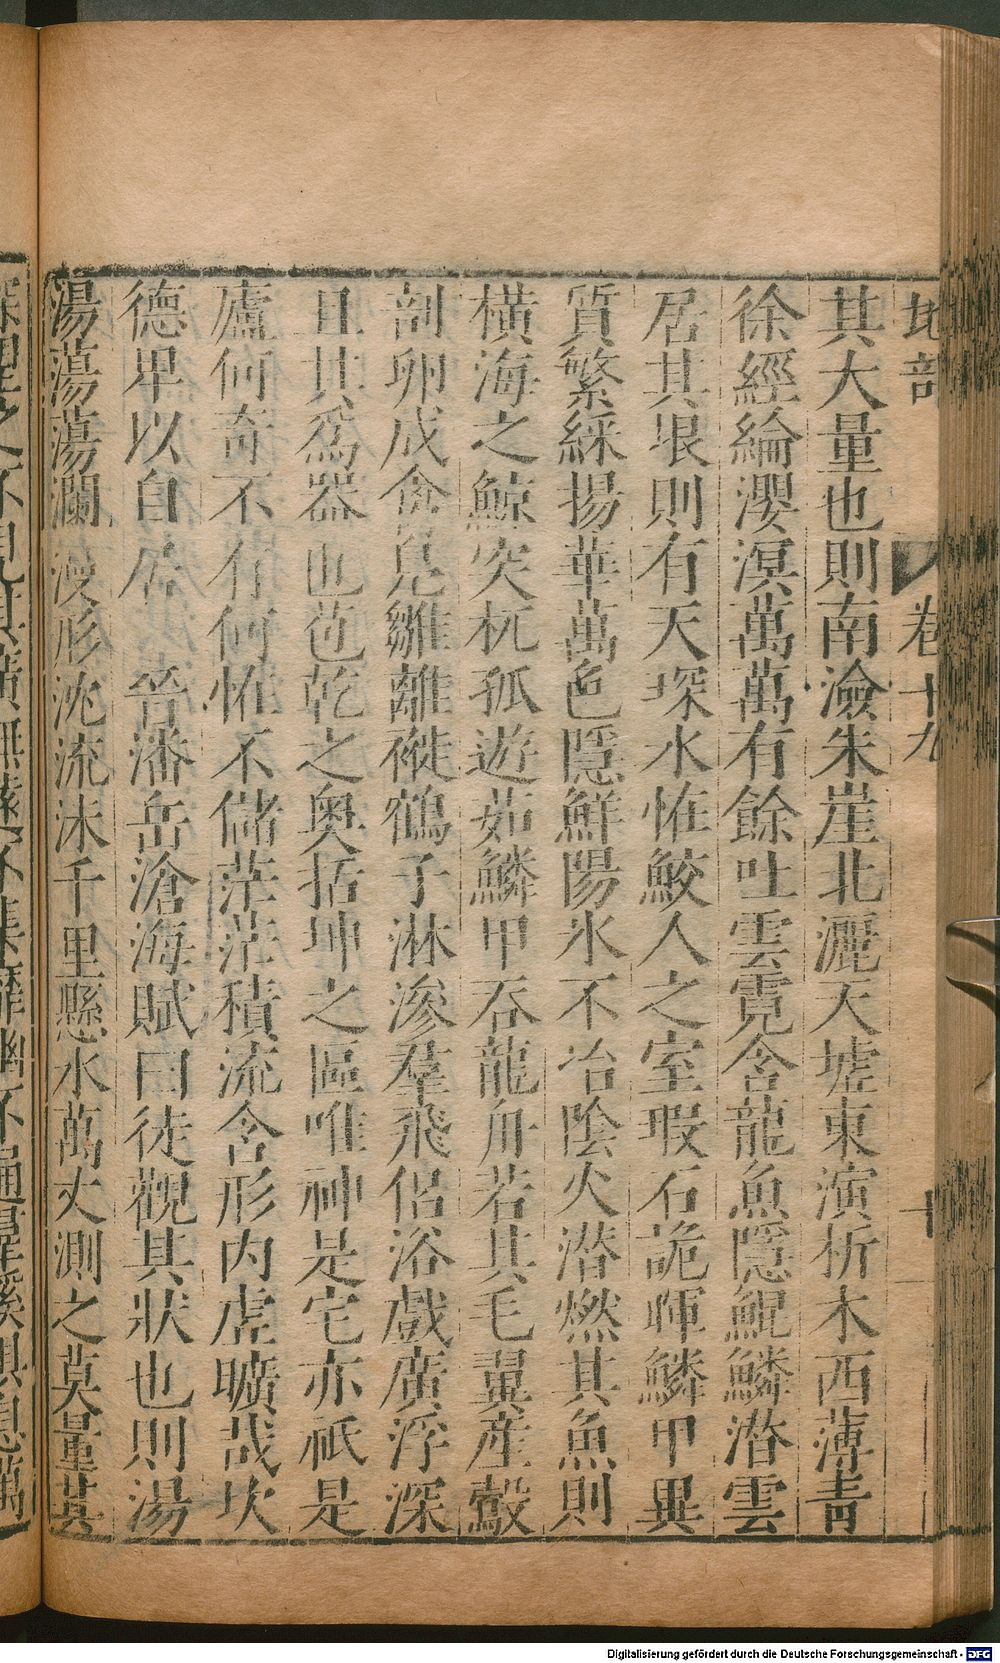 地部 卷十九 十
其大量也則南澰朱崖北灑天墟東演析木西薄青
徐經綸瀴溟萬萬有餘吐雲霓含龍魚隱鯤鱗潛雲
居其垠則有天琛水恠鮫人之室瑕石詭暉鱗甲異
質繁綵揚華萬色隱鮮陽氷不冶陰火潛燃其魚則
橫海之鯨突杌孤遊茹鱗甲吞龍舟若其毛翼產鷇
剖卵成禽鳧雛離褷鶴子淋滲羣飛侶浴戲廣浮深
且其爲器也苞乾之奥括坤之區唯神是宅亦祇是
廬何奇不有何恠不儲茫茫積流含形内虛曠哉坎
德卑以自居 晉潘岳滄海賦曰徒觀其狀也則湯
湯蕩蕩瀾漫形沇流沫千里懸水萬丈測之莫量其
深望之不見其廣無遠不集靡幽不通羣溪俱息萬
Digitalisierung gefördert durch die Deutsche Forschungsgemeinschaft - DFG